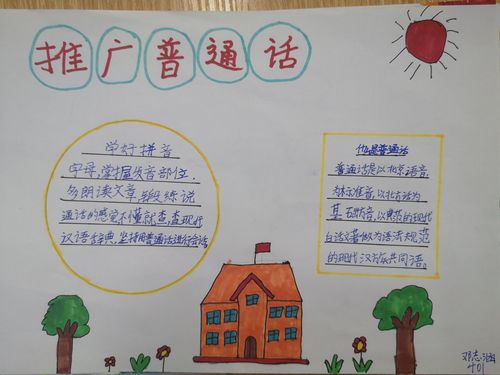 推广普通话
学好拼音
字母,掌握发音部位.
多朗读文章,与段练说
通话的感觉不懂就查,查现代
汉语辞典,坚持用普通话进行会话
什么是普通话
普通话是以北京语音
为标准音,以北方话为
基 音,以典范的现代
白话文著做为语法规范
的现代汉 族共同语。
邓志涵
401